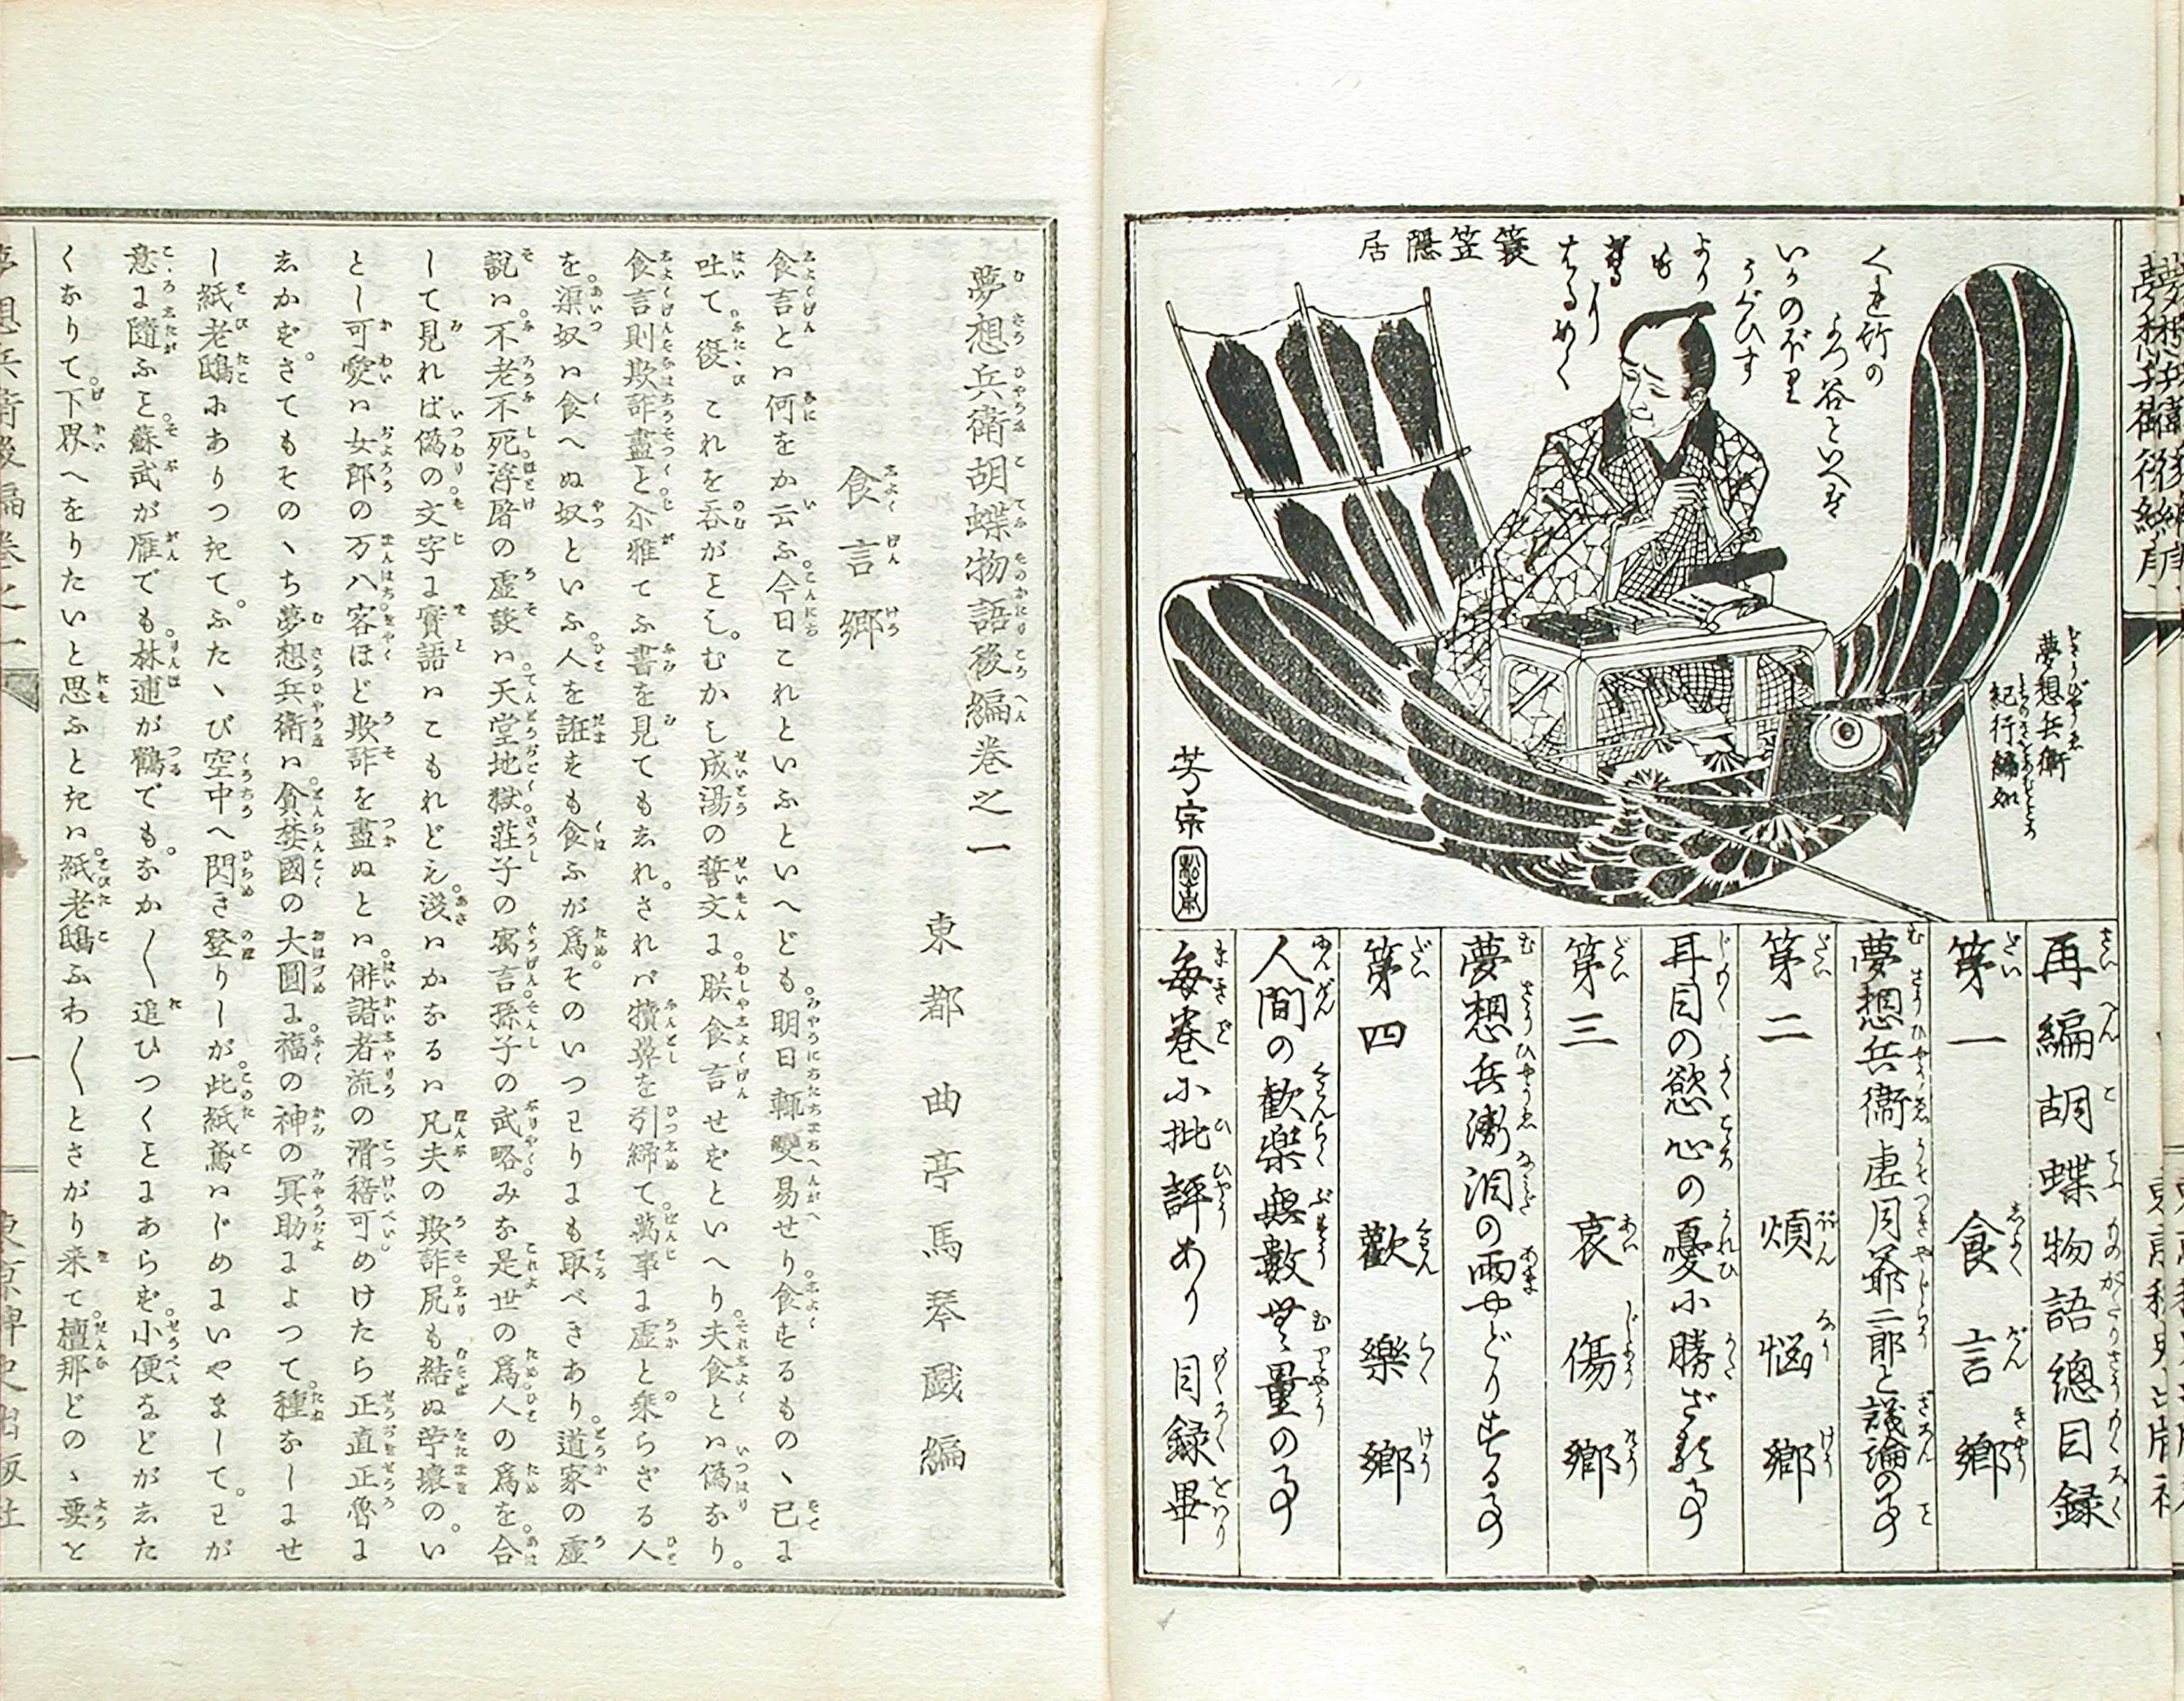 簑笠隱居
くれ竹の
よつ谷といへば
いかのぼり
うぐひす
より
も
芳宗
夢想兵衛
紀行編如
再編胡蝶物語總目録
第一　食言郷
夢想兵衛虚月爺二郎と議論の事
第二　煩悩郷
耳目の慾心の憂に勝ざる事
第三　哀傷郷
夢想兵衛涙の雨やどりする事
第四　歡樂郷
人間の歡樂無數無量の事
毎巻に批評あり　目録畢
夢想兵衛胡蝶物語後編巻之一
東都　曲亭馬琴戯編
食言郷
食言とハ何をか云ふ。今日これといふといへども。明日輒變易せり。食するものヽ已に
吐て。後これを呑がことし。むかし成湯の誓文に。朕食言せずといへり。夫食とハ偽なり。
食言則欺詐盡と尓雅てふ書を見てもしれ。されバ犢鼻を引締て。萬事に虚と乗らざる人
を。渠奴ハ食へぬ奴といふ。人を誑すも食ふが為。そのいつはりにも取べきあり。道家の虚
説ハ。不老不死。浮屠の虚談ハ。天堂地獄。荘子の寓言。孫子の武略。みな是世の為人の為を合
して見れば偽の。文字に實語ハこもれどえ。淺いかなるハ凡夫の欺詐。尻も結ぬ苧環の。い
とし可愛ハ女郎の万八。客ほど欺詐を盡ぬとハ。俳諧者流の滑稽可。めけたら正直正魯に
しかず。さてもそのヽち夢想兵衛ハ。貪婪國の大圓に。福の神の冥助によつて。種なしにせ
し紙老鴟にありつきて。ふたヽび空中へ閃き登りしが。此紙鳶ハじめにいやまして。わが
意に隨ふこと。蘇武が雁でも。林逋が鶴でも。なか〱追ひつくことにあらず。小便などがした
くなりて。下界へをりたいと思ふときハ。紙老鴟ふわ〱とさがり来て。檀那どのヽ要と